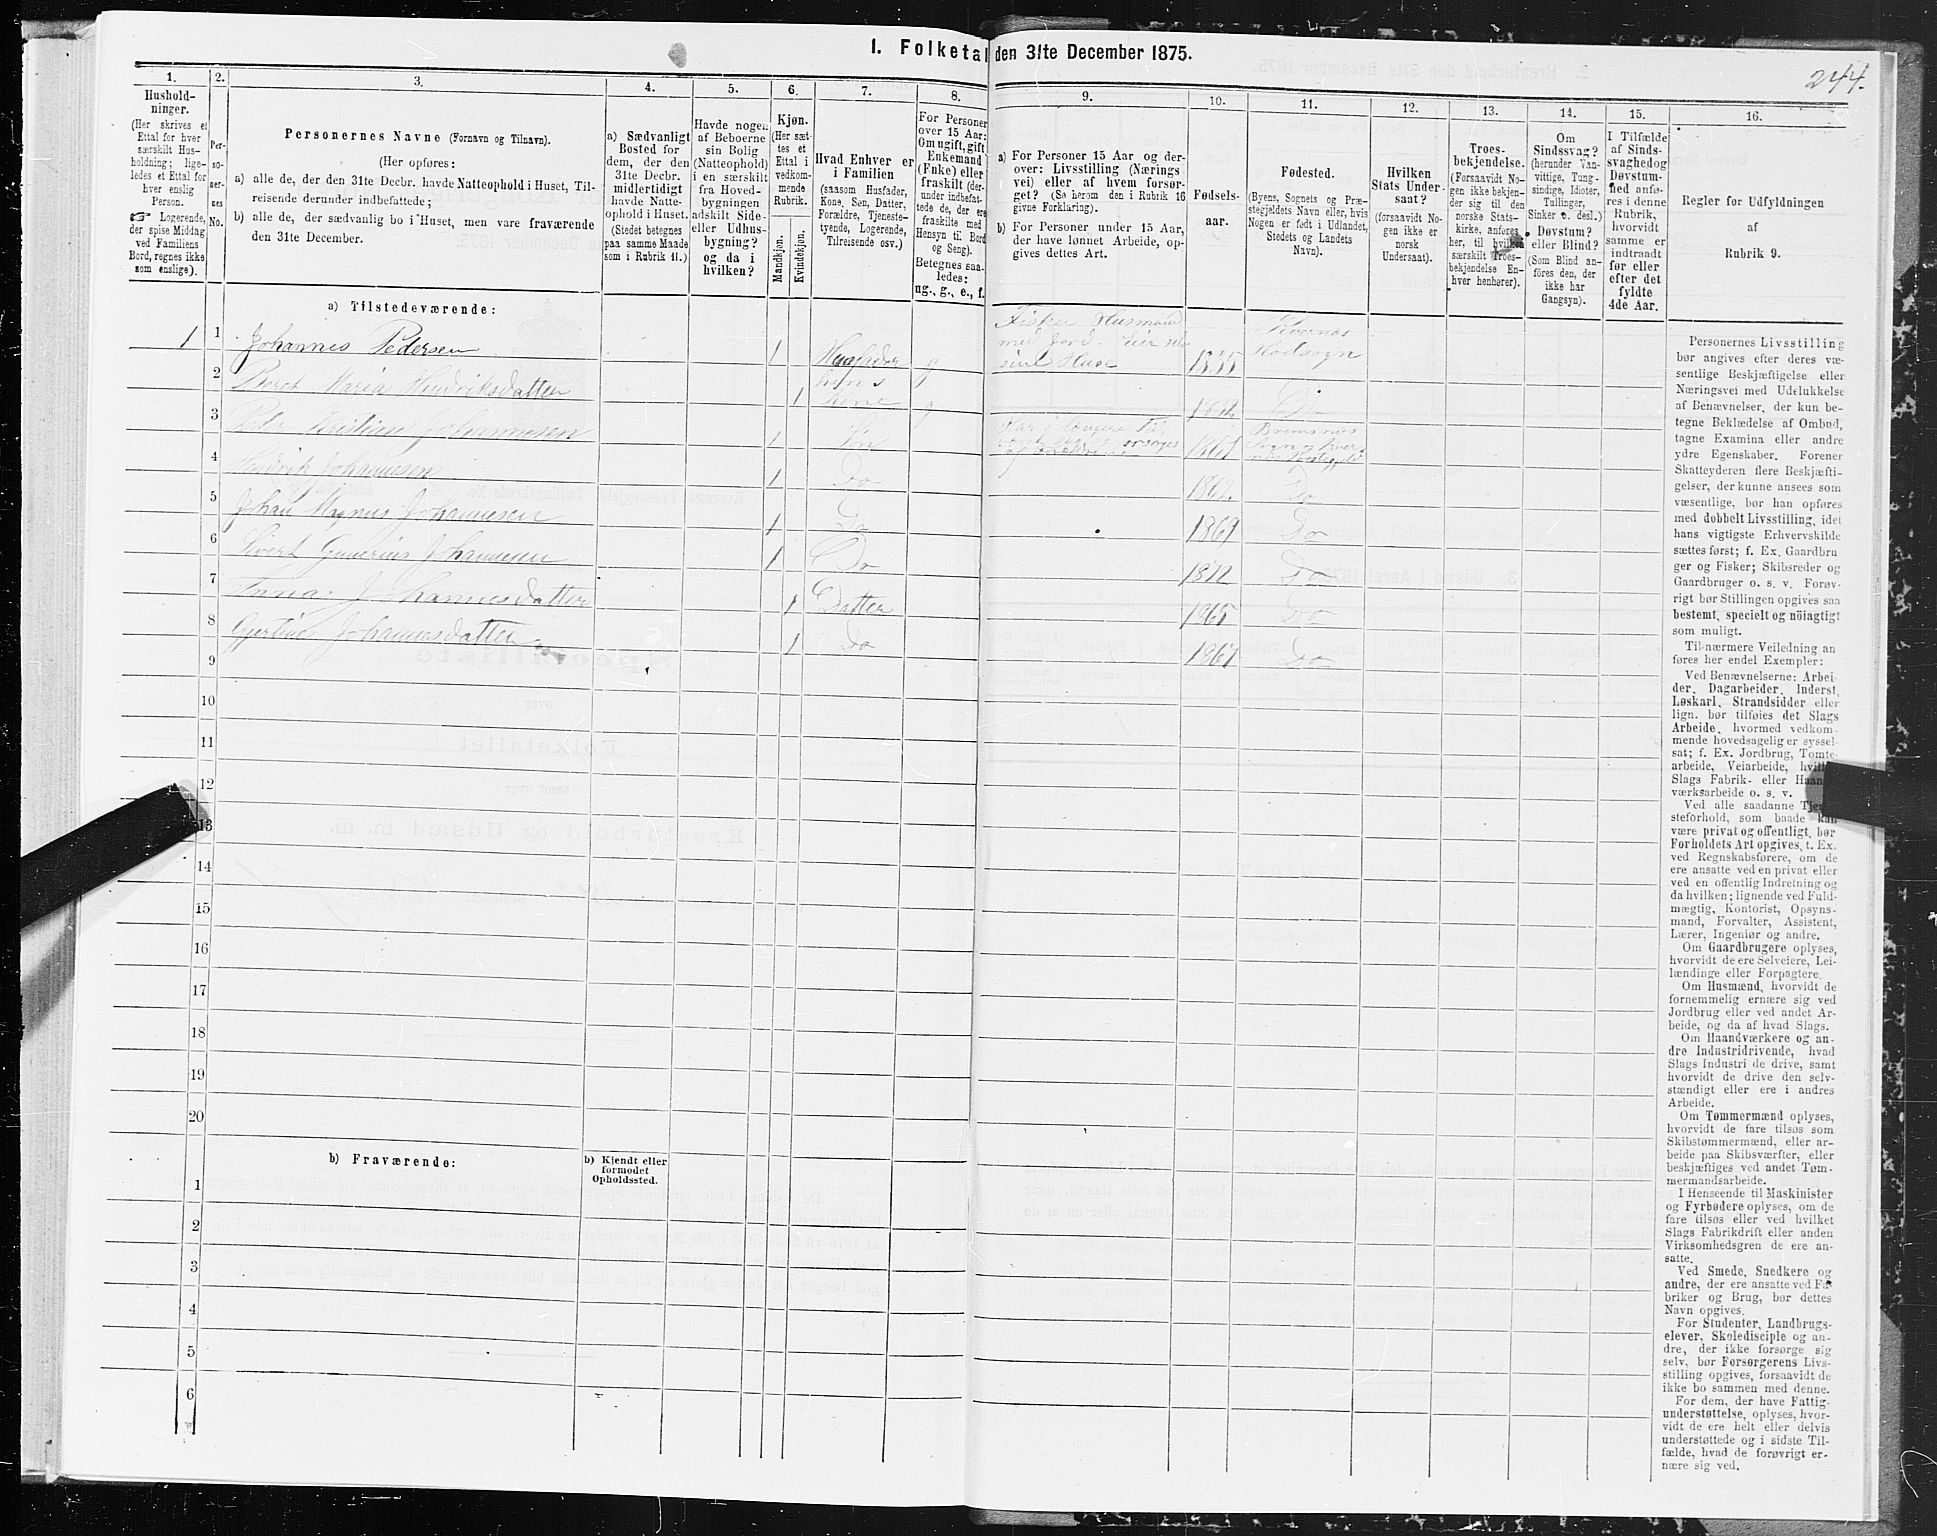 1. Folketal den 31te December 1875.
244.
1.
Hushold-
ninger.
(Her skrives et
Ettal for hver
særskilt Hus-
holdning; lige-
ledes et Ettal for
hver enslig
Person.
Logerende,
der spise Middag
ved Familiens
Bord, regnes ikke
som enslige).
2.
Per-
so-
ner-
nes
No.
3.
Personernes Navne (Fornavn og Tilnavn).
(Her opføres:
a) alle de, der den 31te Decbr. havde Natteophold i Huset, Til-
reisende derunder indbefattede;
b) alle de, der sædvanlig bo i Huset, men vare fraværende
den 31te December.
4.
a) Sædvanligt
Bosted for
dem, der den
31te Decbr.
midlertidigt
havde Natte-
ophold i Huset.
(Stedet betegnes
paa samme Maade
som i Rubrik 11.)
5.
Havde nogen
af Beboerne
sin Bolig
(Natteophold)
i en særskilt
fra Hoved-
bygningen
adskilt Side-
eller Udhus-
bygning?
og da i
hvilken?
6.
Kjøn.
(Her sæt-
tes et
Ettal i
vedkom-
mende
Rubrik.
Mandkjøn.
Kvindekjøn.
7.
Hvad Enhver er
i Familien
(saasom Husfader,
Kone, Søn, Datter,
Forældre, Tjeneste-
tyende, Logerende,
Tilreisende osv.)
8.
For Personer
over 15 Aar:
Om ugift, gift
Enkemand
(Enke) eller
fraskilt (der-
under indbefat-
tede de, der ere
fraskilte med
Hensyn til Bord
og Seng).
Betegnes saa-
ledes:
ug., g., e., f.
9.
a) For Personer 15 Aar og der-
over: Livsstilling (Nærings-
vei) eller af hvem forsør-
get? (Se herom den i Rubrik 16
givne Forklaring).
b) For Personer under 15 Aar,
der have lønnet Arbeide, op-
gives dettes Art.
10.
Fødsels-
aar.
11.
Fødested.
(Byens, Sognets og Præ-
stegjeldets Navn eller, hvis
Nogen er født i Udlandet,
Stedets og Landets
Navn).
12.
Hvilken
Stats Under-
saat?
(forsaavidt No-
gen ikke er
norsk
Undersaat).
13.
Troes-
bekjendelse.
(Forsaavidt No-
gen ikke bekjen-
der sig til den
norske Stats-
kirke, anføres
her, til hvilken
særskilt Troes-
bekjendelse En-
hver henhører).
14.
Om
Sindssvag?
(herunder Van-
vittige, Tung-
sindige, Idioter,
Tullinger,
Sinker o. desl.)
Døvstum?
eller Blind?
(Som Blind an-
føres den, der
ikke har
Gangsyn).
15.
I Tilfælde
af Sinds-
svaghed og
Døvstum-
hed anfø-
res i denne
Rubrik,
hvorvidt
samme er
indtraadt
før eller
efter det
fyldte
4de Aar.
16.
Regler for Udfyldningen
af
Rubrik 9.
a) Tilstedeværende:
1 1 Johannes Pedersen 1 Husfader g Fisker Husmand med Jord sine Huse 1835 Kvernes Hodsogn
2 Beret Maria Hendriksdatter 1 hans kone g Do
3 Peder Kristian Johannesen 1 Søn 1861 Bremsnes Sogn
4 Hendrik Johannesen 1 Do 1862. Do
5 Johan Magnus Johannesen 1 Do 1869 Do
6 Sivert Gunerius Johannesen 1 Do 1872 Do
7 Anna Johannesdatter 1 Datter 1865 Do
8 Gjertine Johannesdatter 1 Do 1867 Do
9
10
11
12
13
14
15
16
17
18
19
20
b) Fraværende:
b) Kjendt eller
formodet
Opholdssted.
1
2
3
4
5
6
Personernes Livsstilling
bør angives efter deres væ-
sentlige Beskjæftigelse eller
Næringsvei med Udelukkelse
af Benævnelser, der kun be-
tegne Beklædelse af Ombud,
tagne Examina eller andre
ydre Egenskaber. Forener
Skatteyderen flere Beskjæfti-
gelser, der kunne ansees som
væsentlige, bør han opføres
med dobbelt Livsstilling, idet
hans vigtigste Erhvervskilde
sættes først; f. Ex. Gaardbru
ger og Fisker; Skibsreder og
Gaardbruger o. s. v. Forøv-
rigt bør Stillingen opgives saa
bestemt, specielt og nöiagtigt
som muligt.
Til nærmere Veiledning an
føres her endel Exempler:
Ved Benævnelserne: Arbei-
der, Dagarbeider, Inderst,
Løskarl, Strandsidder eller
lign. bør tilføies det Slags
Arbeide, hvormed vedkom-
mende hovedsagelig er syssel-
sat; f. Ex. Jordbrug, Tomte-
arbeide, Veiarbeide, hvilket
Slags Fabrik- eller Haand-
værksarbeide o. s. v.
Ved alle saadanne Tjene-
steforhold, som baade kan
være privat og offentligt, bør
Forholdets Art opgives, t. Ex.
ved Regnskabsførere, om de
ere ansatte ved en privat eller
ved en offentlig Indretning og
da hvilken; lignende ved Fuld-
mægtig, Kontorist, Opsyns-
mand, Forvalter, Assistent,
Lærer, Ingeniør og andre.
Om Gaardbrugere oplyses,
hvorvidt de ere Selveiere, Lei-
lændinge eller Forpagtere.
Om Husmænd, hvorvidt de
fornemmelig ernære sig ved
Jordbrug eller ved andet Ar-
beide, og da af hvad Slags.
Om Haandværkere og an-
dre Industridrivende, hvad
Slags Industri de drive, samt
hvorvidt de drive den selv-
stændigt eller ere i andres
Arbeide.
Om Tømmermænd oplyses,
hvorvidt de fare tilsøs som
Skibstømmermænd, eller ar-
beide paa Skibsværfter, eller
beskjæftiges ved andet Tøm-
mermandsarbeide.
I Henseende til Maskinister
og Fyrbødere oplyses, om de
fare tilsøs eller ved hvilket
Slags Fabrikdrift eller anden
Virksomhedsgren de ere an-
satte.
Ved Smede, Snedkere og
andre, der ere ansatte ved Fa-
briker og Brug, bør dettes
Navn opgives.
For Studenter, Landbrugs-
elever, Skoledisciple og an-
dre, der ikke forsørge sig
selv, bør Forsørgerens Livs-
stilling opgives, forsaavidt de
ikke bo sammen med denne.
For dem, der have Fattig-
understøttelse, oplyses, hvor-
vidt de ere helt eller delvis
understøttede og i sidste Til-
fælde, hvad de forøvrigt er-
nære sig ved.